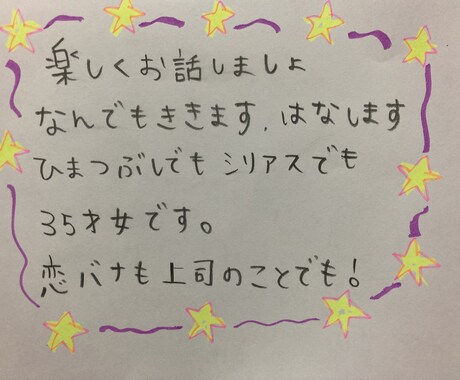 楽しくお話しましょ
なんでもききます、はなします
ひまつぶしでもシリアスでも
35才女です。
恋バナも上司のことでも!